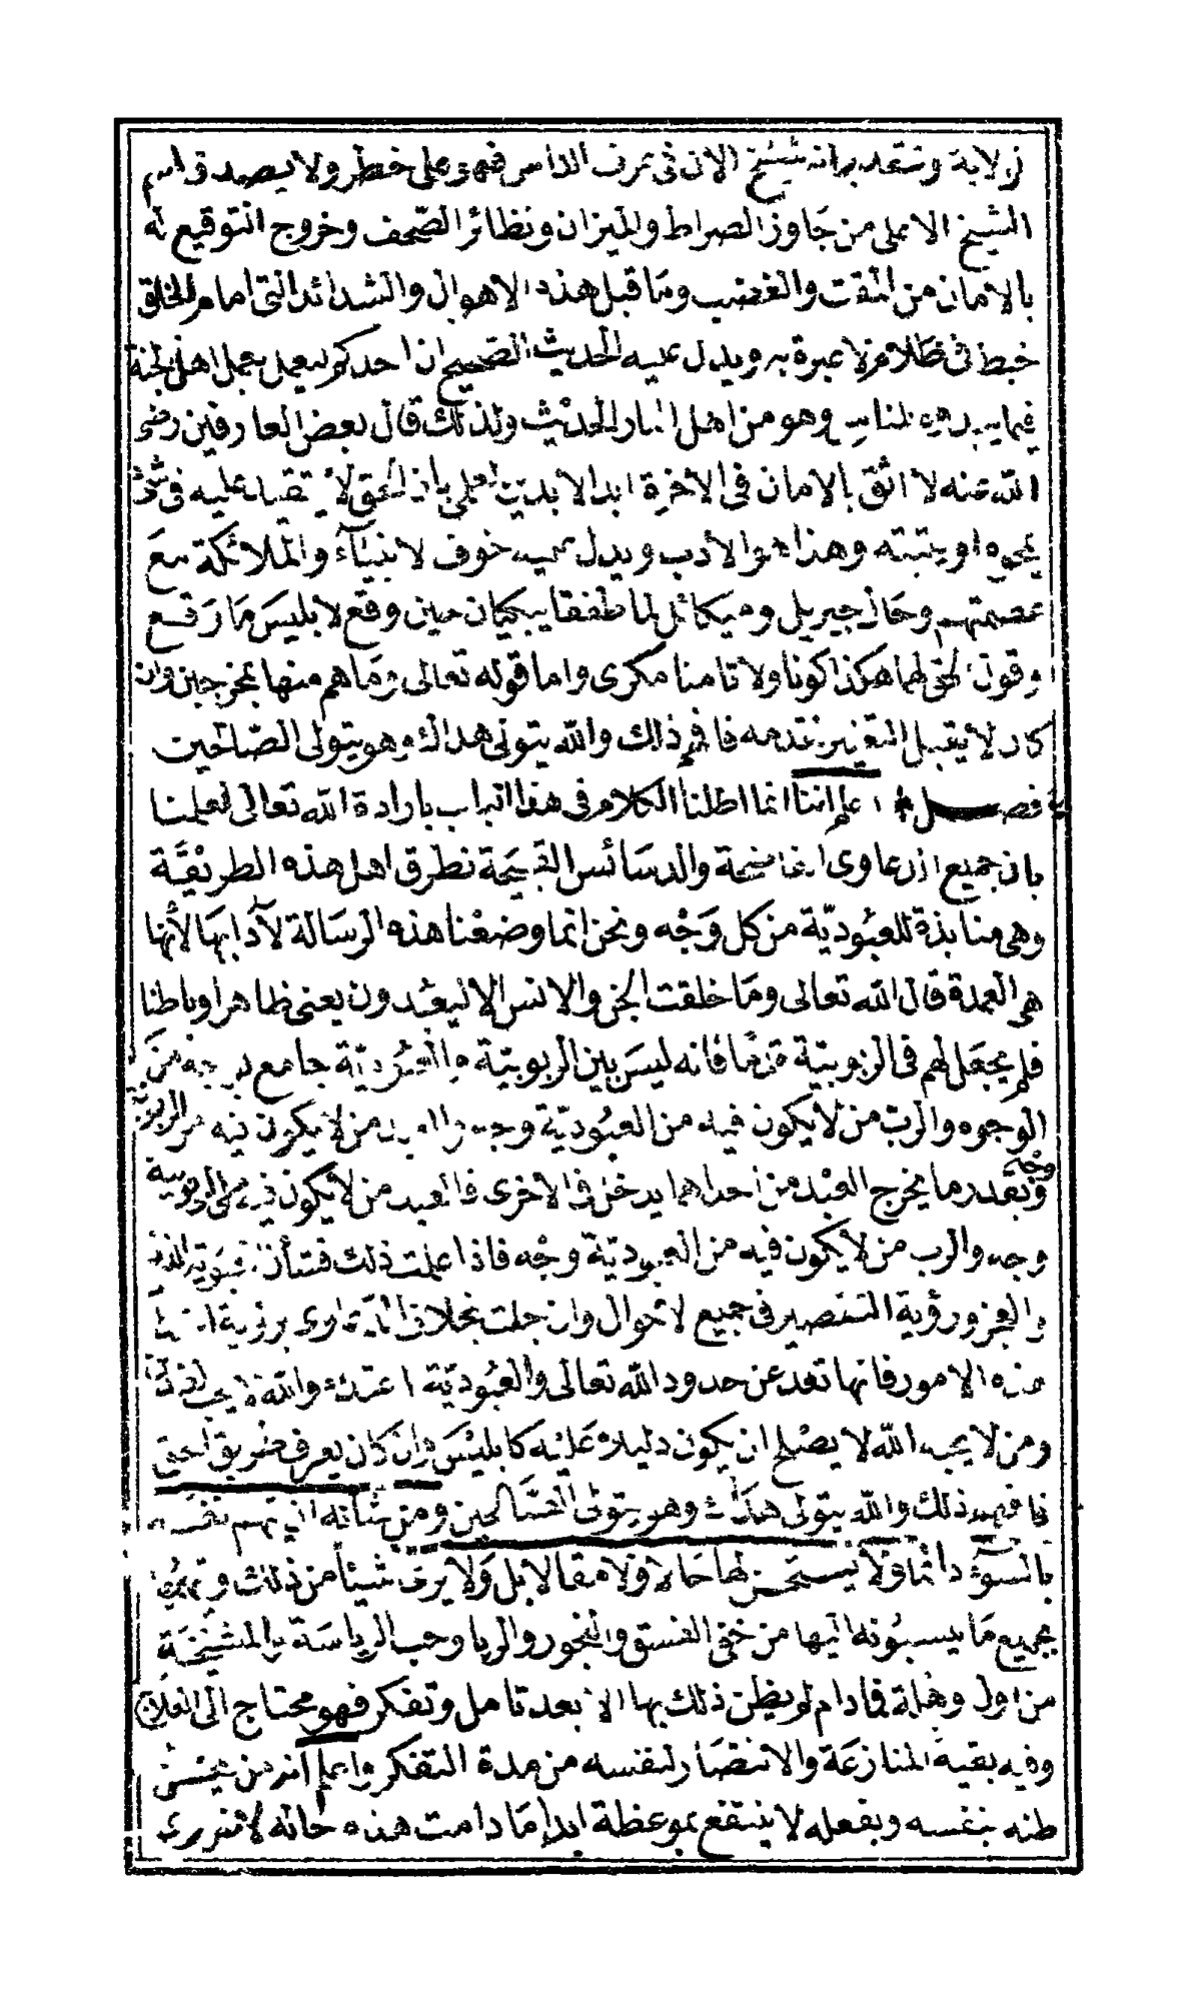 ونعتقد برانه شيخ الان في عرف الناس فهو على خطر ولا يصدق اسم
الشيخ الاعلى من جاوز الصراط والميزان ونظائر الصحف وخروج التوقيع له
بالامان من المقت والغضب وما قبل هذه الاهوال والشدائد التي امام الخلق
خبط في ظلام لا عبرة به ويدل عليه الحديث الصحيح ان احدكم ليعمل بعمل اهل الجنة
فيما يبدو للناس وهو من اهل النار الحديث ولذلك قال بعض العارفين رضي
الله عنه لا اثق بالامان في الاخرة ابد الابدين لعلمي بان الحق لا يتقيد عليه في شئ
يمحوه او يثبته وهذا هو الادب ويدل عليه خوف الانبياء والملائكة مع
عصمتهم وحال جبريل وميكائل لما طفقا يبكيان حين وقع لابليس ما وقع
وقول الحق لهما هكذا كونا ولا تامنا مكري واما قوله تعالى وما هم منها بمخرجين وان
كان لا يقبل التغيير فافهم ذلك والله يتولى هداك وهو يتولى الصالحين
فصل اعلم اننا انما اطلنا الكلام في هذا الباب بارادة الله تعالى لعلمنا
بان جميع الدعاوى والدسائس القبيحة تطرق اهل هذه الطريقة
وهي منابذة للعبودية من كل وجه ونحن انما وضعنا هذه الرسالة لآدابها لأنها
هي العمدة قال الله تعالى وما خلقت الجن والانس الا ليعبدون يعني ظاهرا وباطنا
فلم يجعل لهم في الربوبية قدما فانه ليس بين الربوبية والعبودية جامع بوجه من
الوجوه والرب من لا يكون فيه من العبودية وجه والعبد من لا يكون فيه من الربوبية
وجه
وبقدر ما يخرج العبد من احداهما يدخل في الاخرى فالعبد من لا يكون فيه من الربوبية
وجه والرب من لا يكون فيه من العبودية وجه فاذا علمت ذلك فتأن
والعجز ورؤية التقصير في جميع الاحوال وان جلت بخلاف الدعاوى
هذه الامور فانها تعد عن حدود الله تعالى والعبودية والله لا يحب
ومن لا يحبه الله لا يصلح ان يكون دليلا عليه كابليس وان كان يعرف طريق الحق
فافهم ذلك والله يتولى هداك وهو يتولى الصالحين ومن شأنه ان يتهم نفسه
بالسوء دائما ولا يستحسن لها حالا ولا مقالا بل ولا يرى شيئا من ذلك
بجميع ما ينسبونه اليها من خفي الفسق والفجور والريا وحب الرياسة والمشيخة
من اول وهلة فمادام لم يظن ذلك بها الا بعد تامل وتفكر فهو محتاج الى العلاج
وفيه بقية المنازعة والانتصار لنفسه من مدة التفكر واعلم ان من
ظنه بنفسه وبفعله لا ينتفع بموعظة ابدا ما دامت هذه حاله